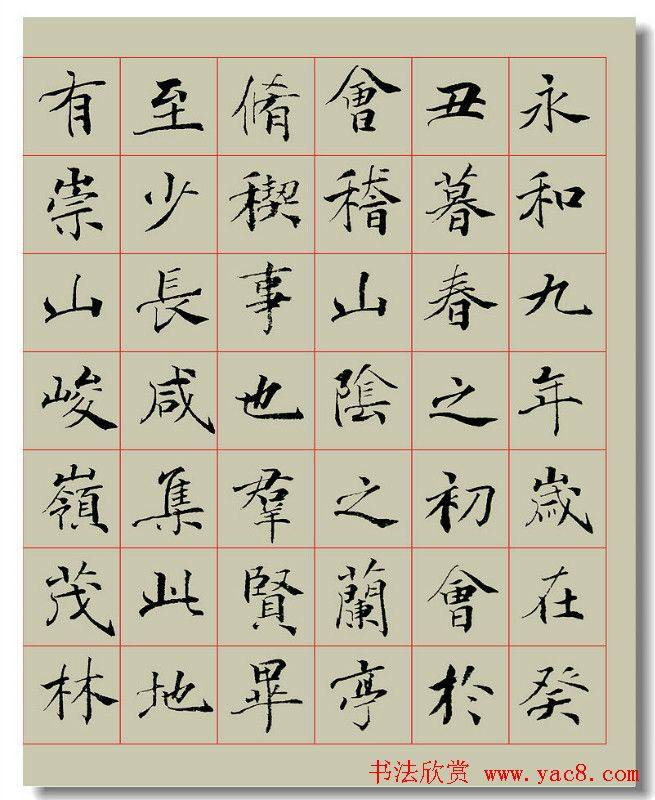 永和九年歲在癸
丑暮春之初會於
會稽山陰之蘭亭
脩稧事也羣賢畢
至少長咸集此地
有崇山峻嶺茂林
书法欣赏 www.yac8.com